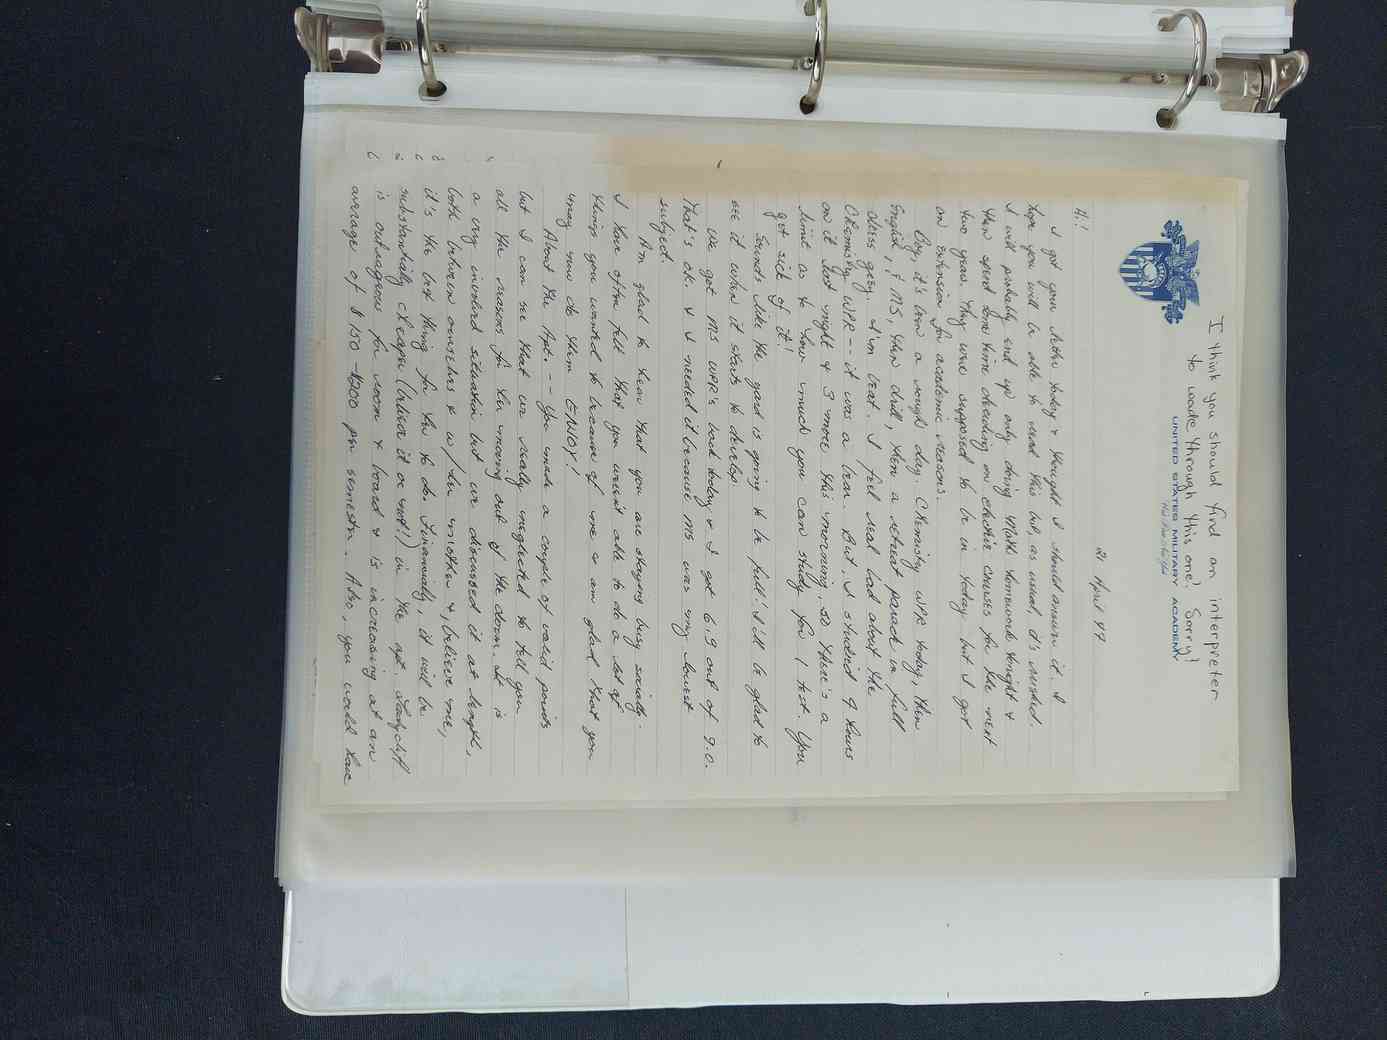 I think you should find an interpreter
to wade through this one! Sorry!
UNITED STATES MILITARY ACADEMY
West Point, New York
21 April 77
Hi!
I got your letter today & thought I should answer it. I
hope you will be able to read this but, as usual it's rushed.
I will probably end up only doing Math homework tonight &
then spend some time deciding on elective courses for the next
two years. They were supposed to be in today but I got
an extension for academic reasons.
Boy, it's been a rough day. Chemistry WPR today, then
English, & MS, then drill, then a retreat parade in full
dress gray. I'm beat. I feel real bad about the
Chemistry WPR -- it was a bear. But, I studied 9 hours
on it last night & 3 more this morning, so there's a
limit as to how much you can study for 1 test. You
get sick of it!
Sounds like the yard is going to be full! I'll be glad to
see it when it starts to develop.
We got MS WPR's back today & I got 6.9 out of 9.0.
That's ok. & I needed it because MS was my lowest
subject.
Am glad to hear that you are staying busy socially.
I have often felt that you weren't able to do a lot of
things you wanted to because of me & am glad that you
may now do them. ENJOY!
About the Apt. -- You made a couple of valid points
but I can see that we really neglected to tell you
all the reasons for her moving out of the dorm. It is
a very involved situation but we discussed it at length,
both between ourselves & w/ her mother &, believe me,
it's the best thing for her to do. Financially it will be
substantially cheaper (believe it or not!) in the apt. Ladycliff
is outrageous for room & board & is increasing at an
average of $150 - $200 per semester. Also, you would have